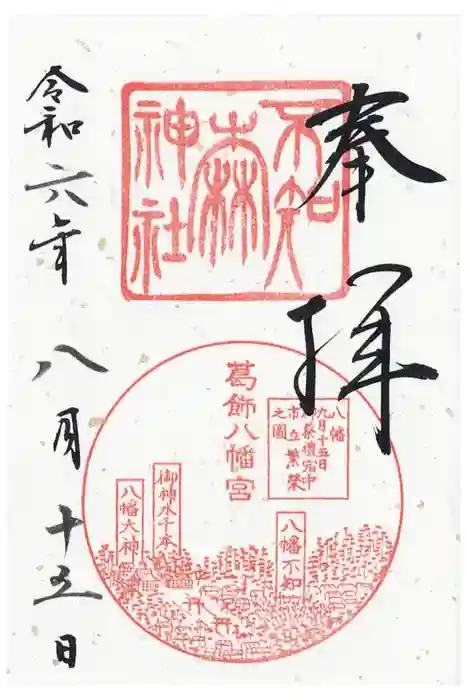 奉拝
不知森神社
葛飾八幡宮
八幡
九月十五日
市立繁榮
之圖
八幡不知
御神水千本
八幡大神
令和六年八月十五日